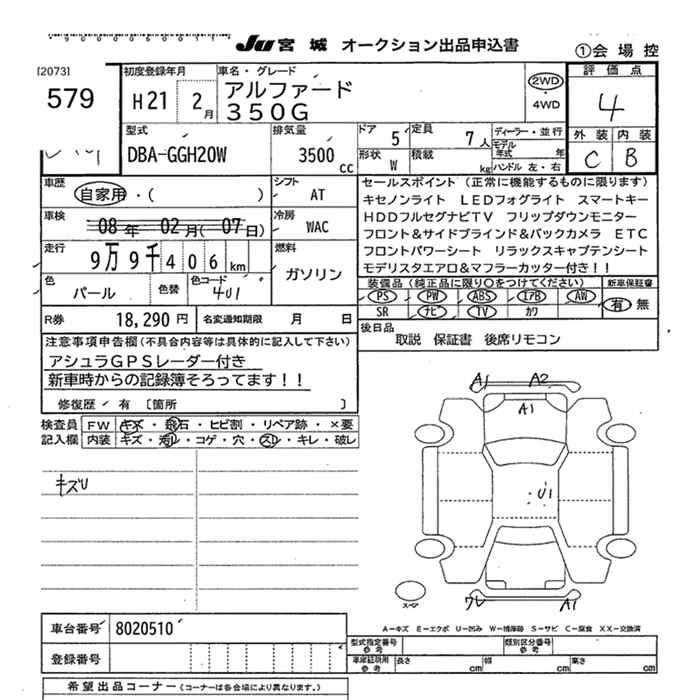 Ju 宮城 オークション出品申込書
①会場控
[2073]
579
初度登録年月
H21 2月
車名・グレード
アルファード
350G
2WD
・
4WD
評価点
4
外装 内装
C B
型式
DBA-GGH20W
排気量
3500 cc
ドア 5
定員 7人
形状 W
積載 kg
ディーラー・並行
モデル年式 年
ハンドル 左・右
車歴
自家用・( )
シフト
AT
車検
08年 02月(07日)
冷房
WAC
走行
9万9千406km
燃料
ガソリン
色
パール
色替
色コード
4U1
R券 18,290円
名変通知期限 月 日
セールスポイント (正常に機能するものに限ります)
キセノンライト LEDフォグライト スマートキー
HDDフルセグナビTV フリップダウンモニター
フロント&サイドブラインド&バックカメラ ETC
フロントパワーシート リラックスキャプテンシート
モデリスタエアロ&マフラーカッター付き!!
装備品(純正品に限り○をつけてください)
新車保証書
PS PW ABS エアB AW
SR ナビ TV カワ
有 無
後日品
取説 保証書 後席リモコン
注意事項申告欄(不具合内容等は具体的に記入して下さい)
アシュラGPSレーダー付き
新車時からの記録簿そろってます!!
修復歴・有 [箇所 ]
検査員記入欄
FW キズ・飛石・ヒビ割・リペア跡・×要
内装 キズ・汚レ・コゲ・穴・スレ・キレ・破レ
キズU
A1 A2
A1
U1
A1
スペア
A-キズ E-エクボ U-凹み W-補修跡 S-サビ C-腐食 XX-交換済
車台番号 8020510
登録番号
型式指定番号 参考
類別区分番号 参考
車庫証明用 参考
長さ cm
幅 cm
高さ cm
希望出品コーナー (コーナーは各会場により異なります。)